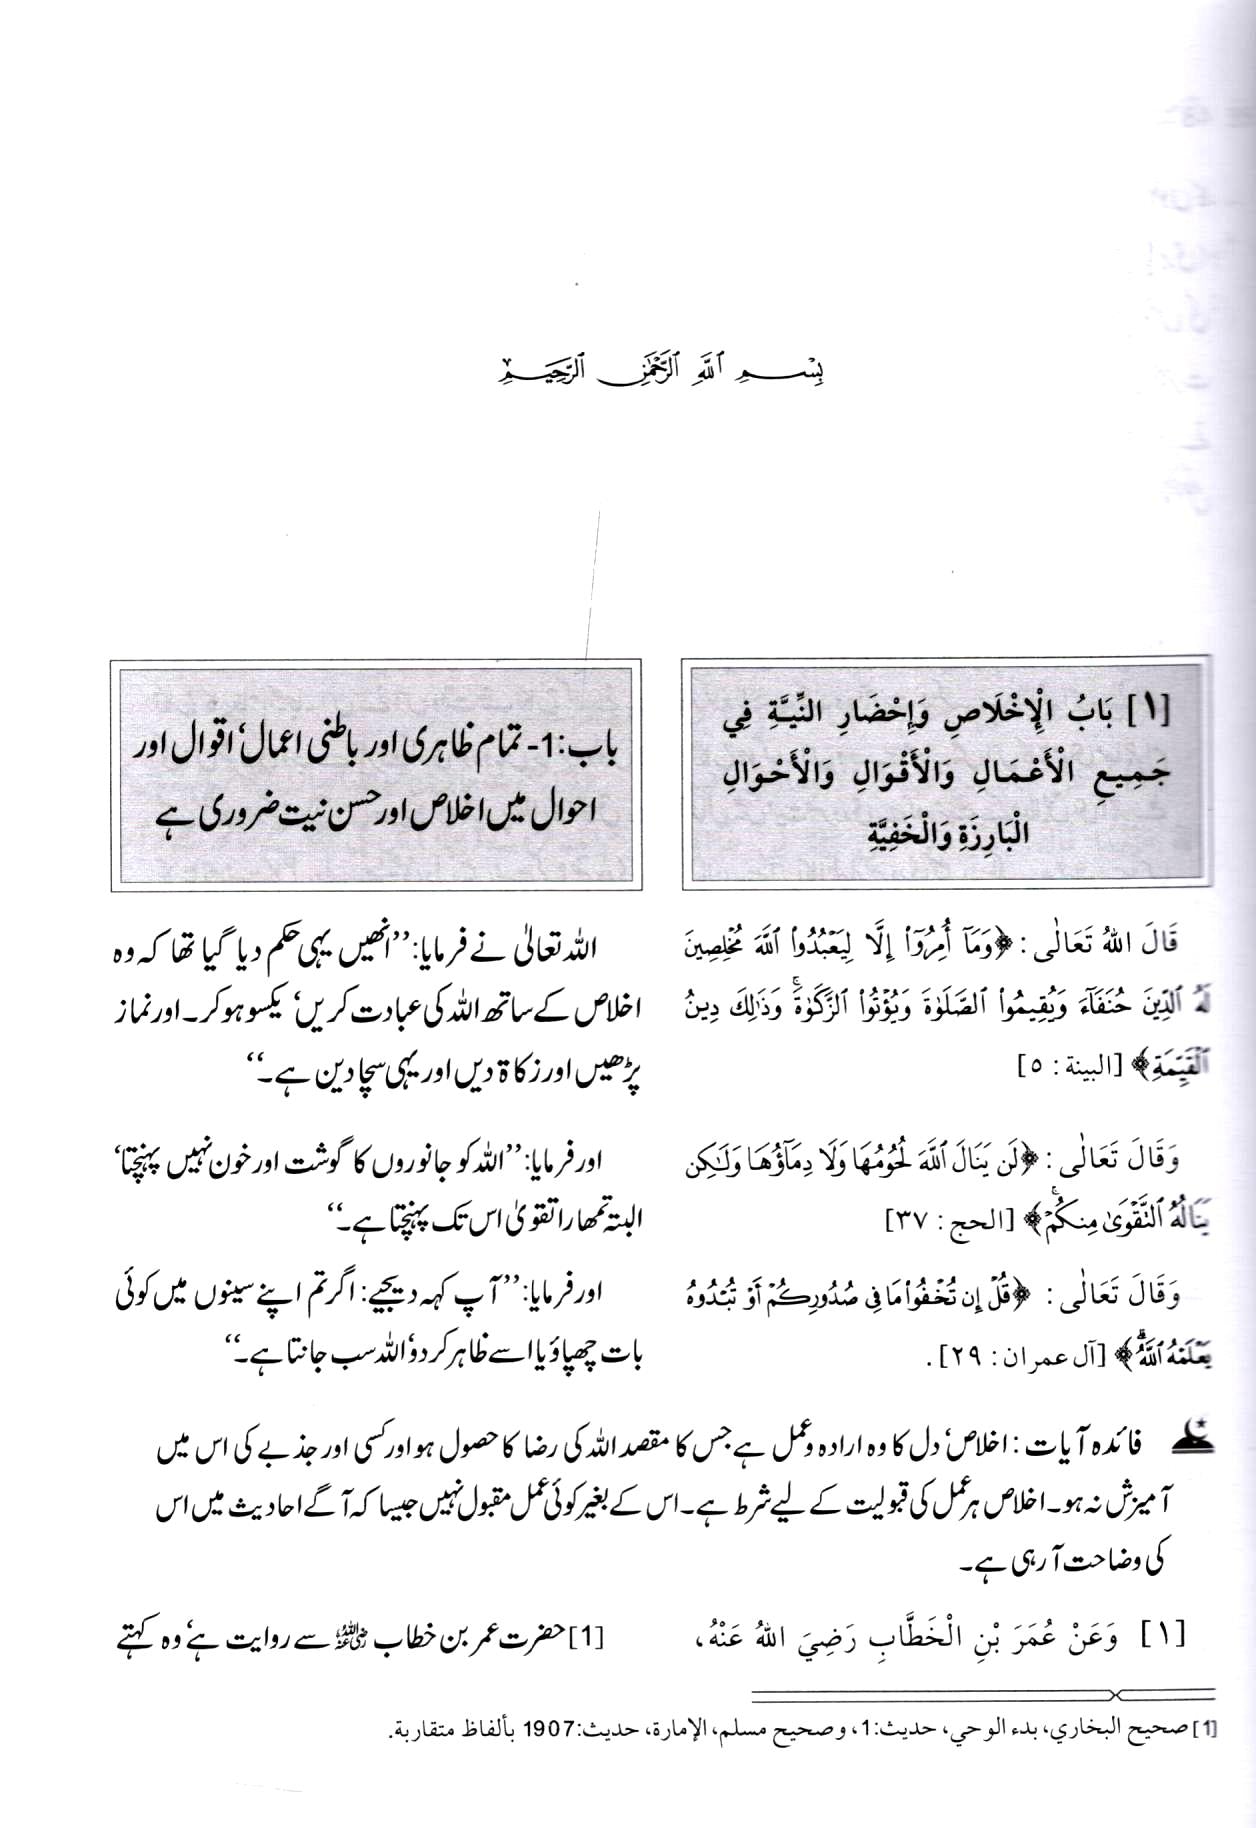 بِسْمِ ٱللَّهِ ٱلرَّحْمَٰنِ ٱلرَّحِيمِ
[١] بَابُ الْإِخْلَاصِ وَإِحْضَارِ النِّيَّةِ فِي
جَمِيعِ الْأَعْمَالِ وَالْأَقْوَالِ وَالْأَحْوَالِ
الْبَارِزَةِ وَالْخَفِيَّةِ
باب:1- تمام ظاہری اور باطنی اعمال‘ اقوال اور
احوال میں اخلاص اور حسن نیت ضروری ہے
قَالَ اللهُ تَعَالٰى : ﴿وَمَآ أُمِرُوٓا۟ إِلَّا لِيَعْبُدُوا۟ ٱللَّهَ مُخْلِصِينَ
لَهُ ٱلدِّينَ حُنَفَآءَ وَيُقِيمُوا۟ ٱلصَّلَوٰةَ وَيُؤْتُوا۟ ٱلزَّكَوٰةَ ۚ وَذَٰلِكَ دِينُ
ٱلْقَيِّمَةِ﴾ [البينة : ٥]
الله تعالیٰ نے فرمایا: ’’انھیں یہی حکم دیا گیا تھا کہ وہ
اخلاص کے ساتھ اللہ کی عبادت کریں‘ یکسو ہو کر۔ اور نماز
پڑھیں اور زکاۃ دیں اور یہی سچا دین ہے۔‘‘
وَقَالَ تَعَالٰى : ﴿لَن يَنَالَ ٱللَّهَ لُحُومُهَا وَلَا دِمَآؤُهَا وَلَٰكِن
يَنَالُهُ ٱلتَّقْوَىٰ مِنكُمْ ۚ﴾ [الحج : ٣٧]
اور فرمایا: ’’اللہ کو جانوروں کا گوشت اور خون نہیں پہنچتا‘
البتہ تمھارا تقویٰ اس تک پہنچتا ہے۔‘‘
وَقَالَ تَعَالٰى : ﴿قُلْ إِن تُخْفُوا۟ مَا فِى صُدُورِكُمْ أَوْ تُبْدُوهُ
يَعْلَمْهُ ٱللَّهُ ۗ﴾ [آل عمران : ٢٩].
اور فرمایا: ’’آپ کہہ دیجیے: اگر تم اپنے سینوں میں کوئی
بات چھپاؤ یا اسے ظاہر کر دو‘ اللہ سب جانتا ہے۔‘‘
فائدہ آیات : اخلاص‘ دل کا وہ ارادہ و عمل ہے جس کا مقصد اللہ کی رضا کا حصول ہو اور کسی اور جذبے کی اس میں
آمیزش نہ ہو۔ اخلاص ہر عمل کی قبولیت کے لیے شرط ہے۔ اس کے بغیر کوئی عمل مقبول نہیں جیسا کہ آگے احادیث میں اس
کی وضاحت آ رہی ہے۔
[١] وَعَنْ عُمَرَ بْنِ الْخَطَّابِ رَضِيَ اللهُ عَنْهُ،
[1] حضرت عمر بن خطاب رضی اللہ عنہ سے روایت ہے‘ وہ کہتے
[1] صحيح البخاري، بدء الوحي، حديث:1، وصحيح مسلم، الإمارة، حديث:1907 بألفاظ متقاربة.